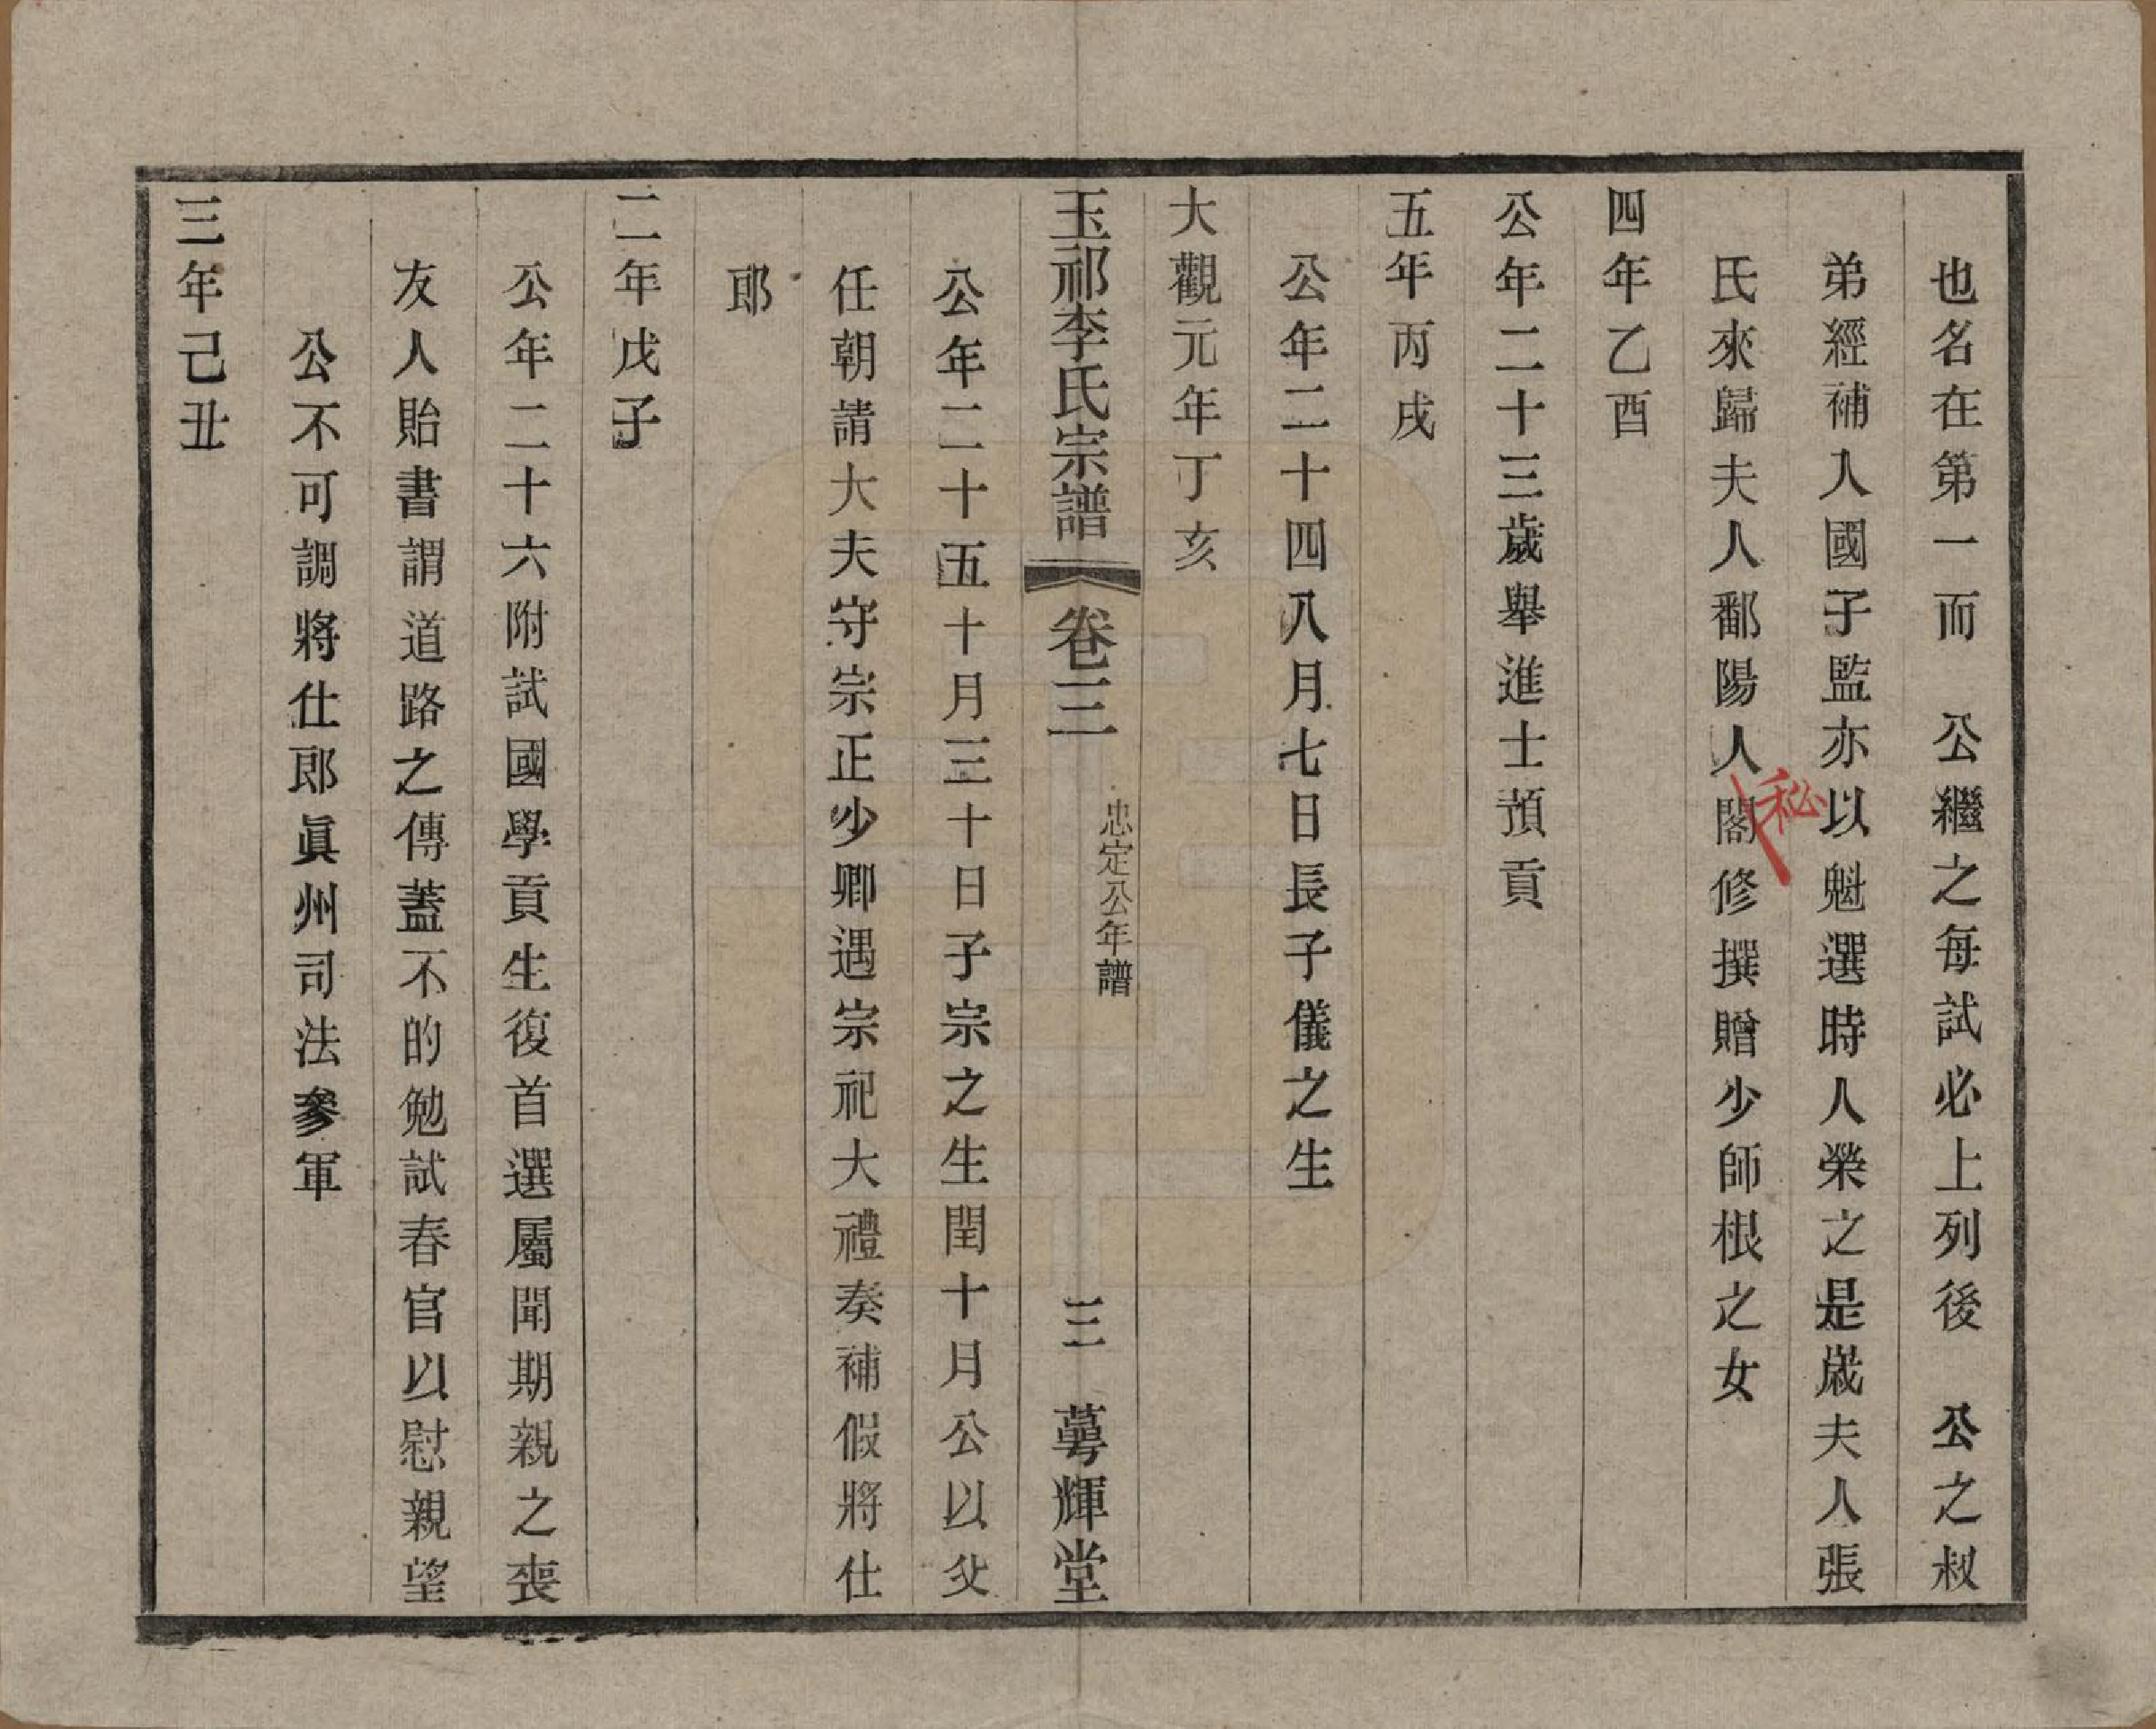 也名在第一而　公繼之每試必上列後　公之叔
弟經補入國子監亦以魁選時人榮之是歲夫人張
氏來歸夫人鄱陽人閣修撰贈少師根之女
秘
四年乙酉
公年二十三歲舉進士預貢
五年丙戌
公年二十四八月七日長子儀之生
大觀元年丁亥
玉祁李氏宗譜　卷三　忠定公年譜　三　蕚輝堂
公年二十五十月三十日子宗之生閏十月公以父
任朝請大夫守宗正少卿遇宗祀大禮奏補假將仕
郎
二年戊子
公年二十六附試國學貢生復首選屬聞期親之喪
友人貽書謂道路之傳蓋不的勉試春官以慰親望
公不可調將仕郎眞州司法參軍
三年己丑